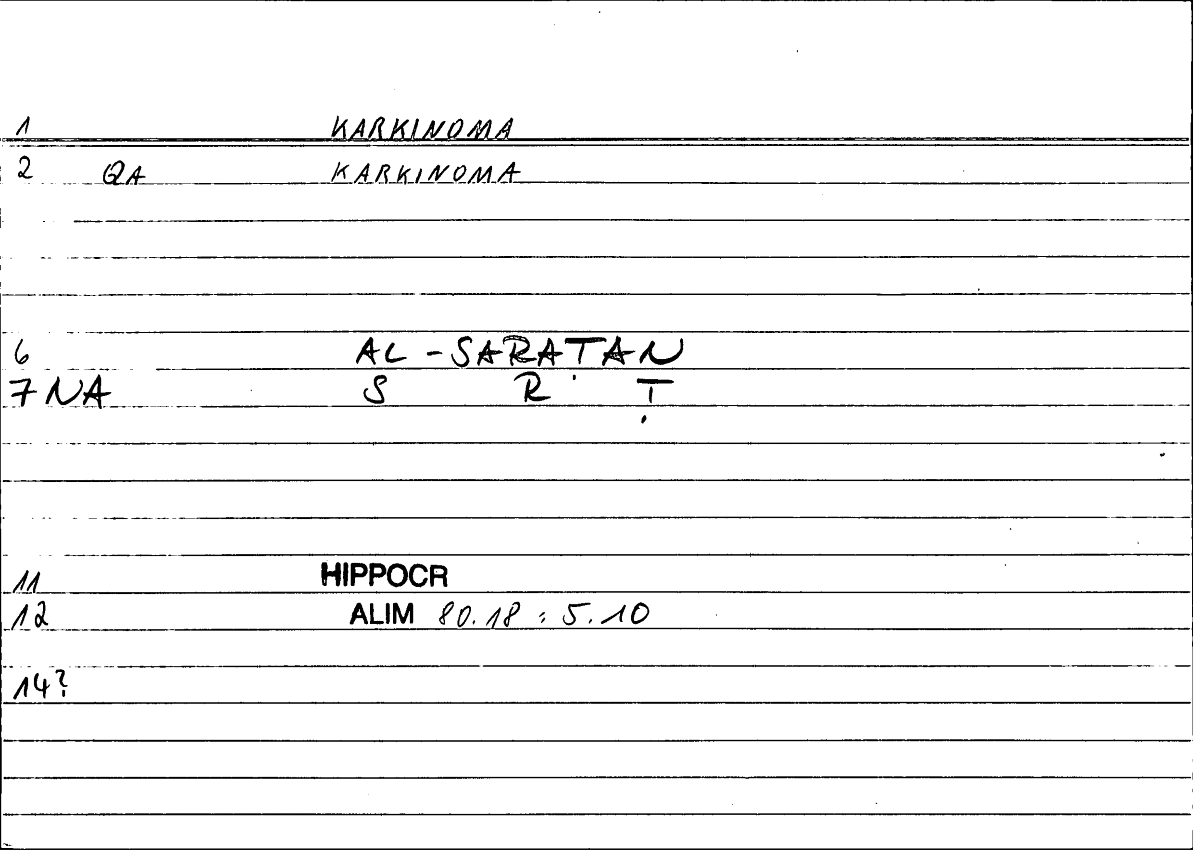 1 KARKINOMA
2 QA KARKINOMA
6 AL-SARAṬAN
7 NA S R Ṭ
11 HIPPOCR
12 ALIM 80.18 : 5.10
14?